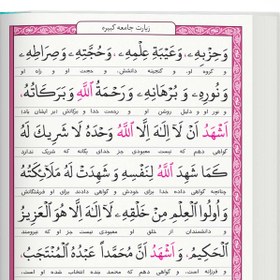 زیارت جامعه کبیره
وَحِزْبِهِ، وَعَيْبَةِ عِلْمِهِ، وَحُجَّتِهِ، وَصِرَاطِهِ،
و گروه او، و گنجینه دانشش، و حجت او و راه او
وَنُورِهِ، وَ بُرْهَانِهِ، وَ رَحْمَةُ اللّٰهِ وَ بَرَكَاتُهُ،
و نور او و دلیل روشن او و رحمت خدا و برکاتش
اَشْهَدُ اَنْ لَا اِلٰهَ اِلَّا اللّٰهُ وَحْدَهُ لَا شَرِيكَ لَهُ
گواهی دهم که نیست معبودی جز خدای یگانه که شریک ندارد
كَمَا شَهِدَ اللّٰهُ لِنَفْسِهِ وَ شَهِدَتْ لَهُ مَلَآئِكَتُهُ
چنانچه گواهی داده خدا برای خودش و گواهی دادند برای او فرشتگانش
وَ اُولُوا الْعِلْمِ مِنْ خَلْقِهِ، لَا اِلٰهَ اِلَّا هُوَ الْعَزِيزُ
و دانشمندان از خلق او معبودی نیست جز او که نیرومند
الْحَكِيمُ، وَ اَشْهَدُ اَنَّ مُحَمَّداً عَبْدُهُ الْمُنْتَجَبُ،
و فرزانه است، و گواهی دهم که محمد بنده